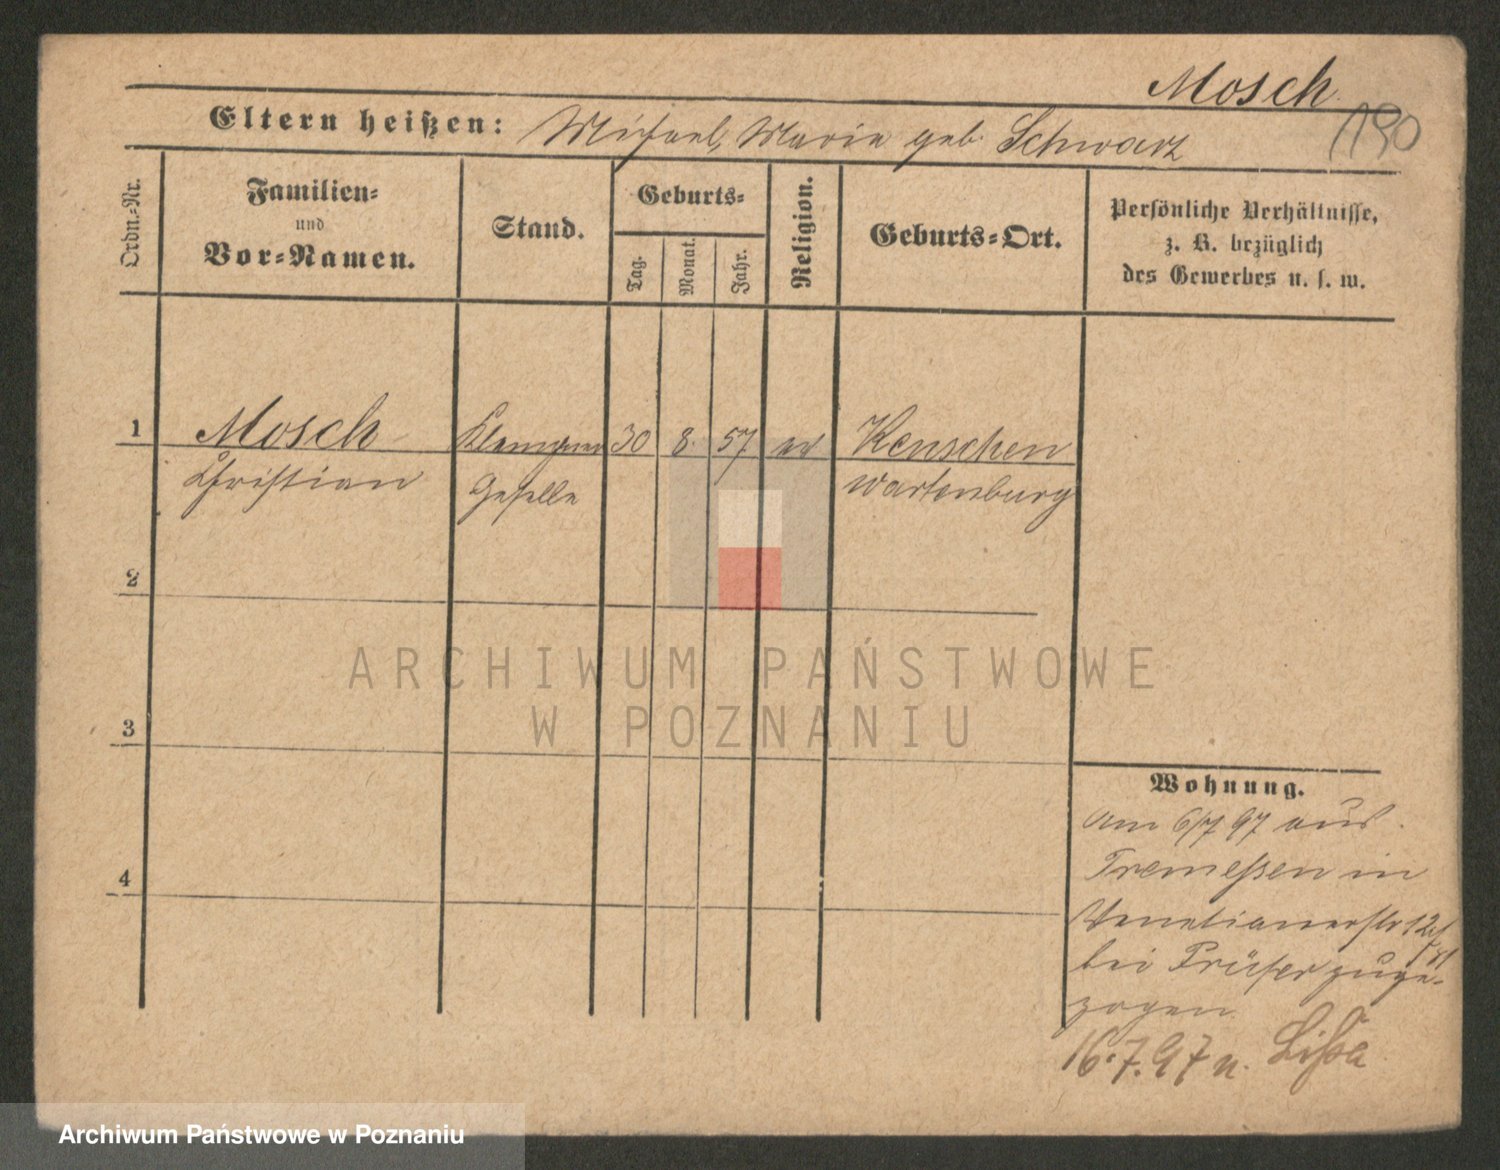 Mosch
190
Eltern heißen: Michael, Maria geb. Schwarz
Ordn.-Nr.
Familien-
und
Vor-Namen.
Stand.
Geburts-
Tag.
Monat.
Jahr.
Religion.
Geburts-Ort.
Persönliche Verhältnisse,
z. B. bezüglich
des Gewerbes u. s. w.
1
Mosch Klempner 30 8. 57 ev Kenschen
Christian Geselle Wartenburg
2
3
4
ARCHIWUM PAŃSTWOWE
W POZNANIU
Wohnung.
Am 6/7 97 aus
Tremeßen in
Venetianerstr 12
bei Prüfer zuge-
zogen
16.7.97 n. Lissa
Archiwum Państwowe w Poznaniu